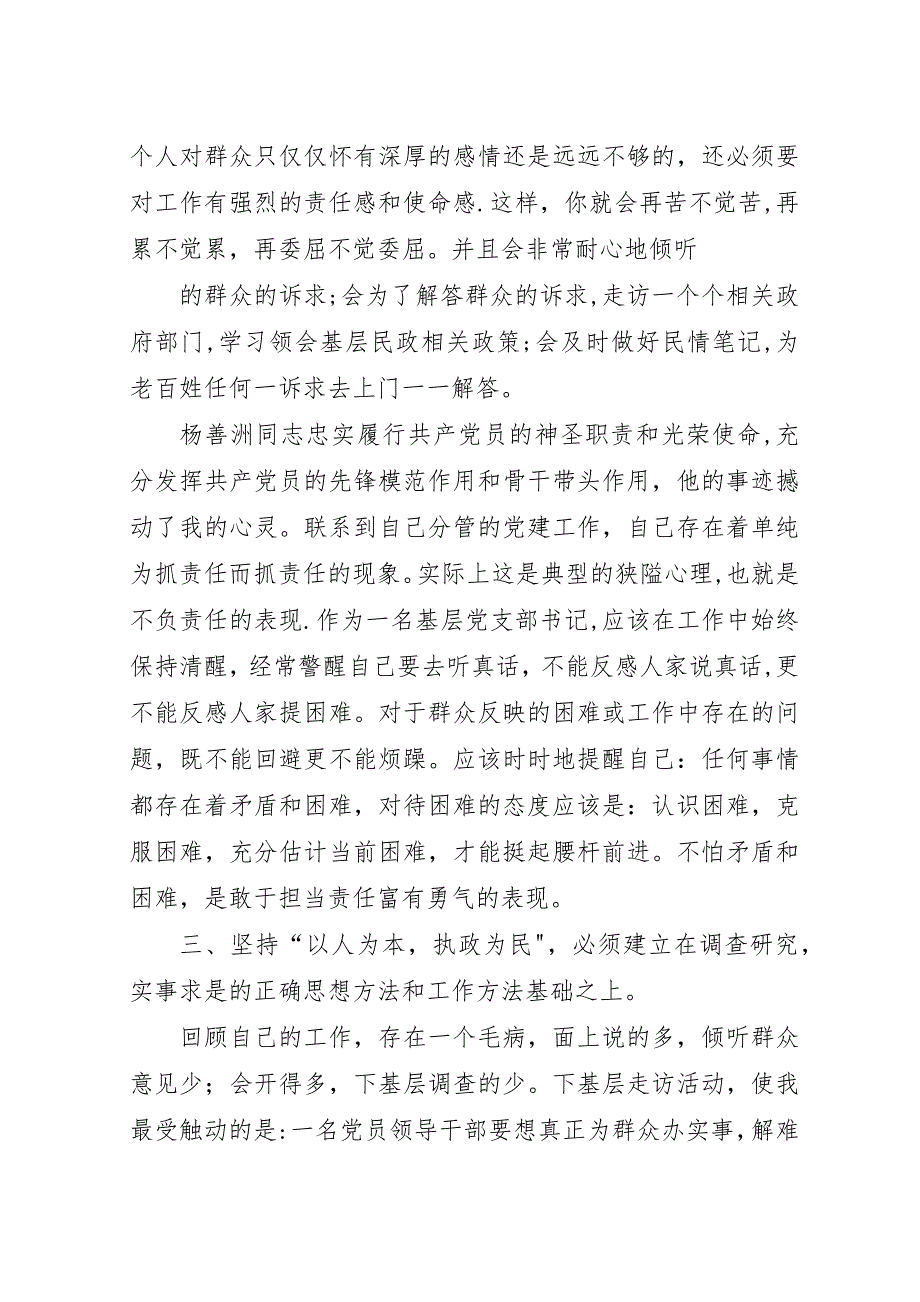 个人对群众只仅仅怀有深厚的感情还是远远不够的，还必须要
对工作有强烈的责任感和使命感.这样，你就会再苦不觉苦,再
累不觉累，再委屈不觉委屈。并且会非常耐心地倾听
的群众的诉求;会为了解答群众的诉求,走访一个个相关政
府部门,学习领会基层民政相关政策;会及时做好民情笔记,为
老百姓任何一诉求去上门一一解答。
杨善洲同志忠实履行共产党员的神圣职责和光荣使命,充
分发挥共产党员的先锋模范作用和骨干带头作用，他的事迹撼
动了我的心灵。联系到自己分管的党建工作，自己存在着单纯
为抓责任而抓责任的现象。实际上这是典型的狭隘心理,也就是
不负责任的表现.作为一名基层党支部书记,应该在工作中始终
保持清醒，经常警醒自己要去听真话，不能反感人家说真话,更
不能反感人家提困难。对于群众反映的困难或工作中存在的问
题，既不能回避更不能烦躁。应该时时地提醒自己：任何事情
都存在着矛盾和困难，对待困难的态度应该是：认识困难，克
服困难，充分估计当前困难，才能挺起腰杆前进。不怕矛盾和
困难，是敢于担当责任富有勇气的表现。
三、坚持“以人为本，执政为民"，必须建立在调查研究，
实事求是的正确思想方法和工作方法基础之上。
回顾自己的工作，存在一个毛病，面上说的多，倾听群众
意见少；会开得多，下基层调查的少。下基层走访活动，使我
最受触动的是:一名党员领导干部要想真正为群众办实事,解难